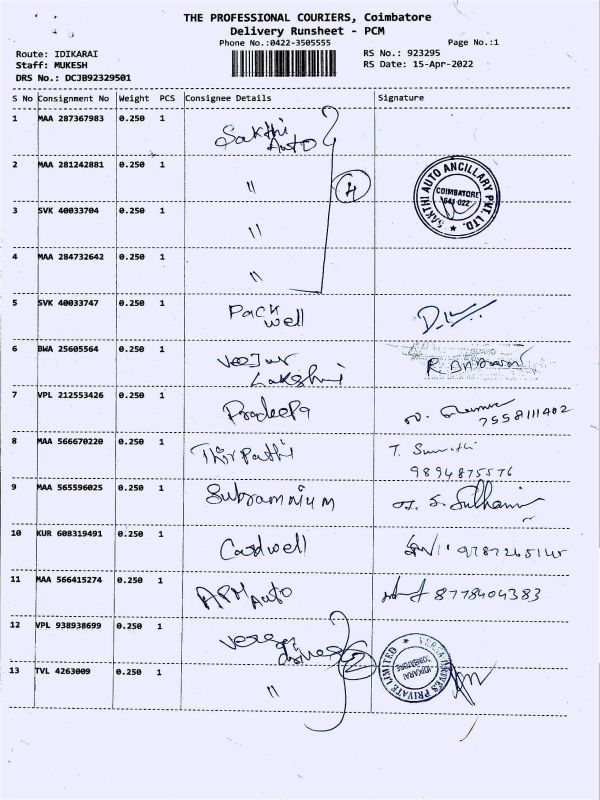 THE PROFESSIONAL COURIERS, Coimbatore
Delivery Runsheet - PCM
Phone No.:0422-3505555
Page No.:1
Route: IDIKARAI
RS No.: 923295
Staff: MUKESH
RS Date: 15-Apr-2022
DRS No.: DCJB92329501
S No Consignment No Weight PCS Consignee Details Signature
1 MAA 287367983 0.250 1 Sakthi Auto
2 MAA 281242881 0.250 1 "
4
SAKTHI AUTO ANCILLARY PVT. LTD.
COIMBATORE
641 022
3 SVK 40033704 0.250 1 "
4 MAA 284732642 0.250 1 "
5 SVK 40033747 0.250 1 Pack well
6 BWA 25605564 0.250 1 Lakshmi
7 VPL 212553426 0.250 1 Pradeepa
7558111402
8 MAA 566670220 0.250 1 Thirpathi T. Sumathi
9894875576
9 MAA 565596025 0.250 1 Subramnium
10 KUR 608319491 0.250 1 Cardwell 9787265145
11 MAA 566415274 0.250 1 APM Auto 8778404383
12 VPL 938938699 0.250 1
2
DRIVES PRIVATE LIMITED
IDIKARAI
COIMBATORE
13 TVL 4263009 0.250 1 "